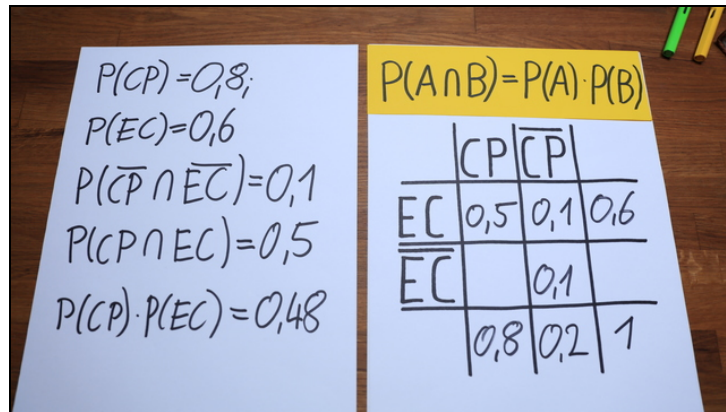 P(CP)=0,8;
P(EC)=0,6
P(C̅P̅ ∩ E̅C̅)=0,1
P(CP∩EC)=0,5
P(CP)·P(EC)=0,48
P(A∩B)=P(A)·P(B)
CP C̅P̅
EC 0,5 0,1 0,6
E̅C̅ 0,1
0,8 0,2 1